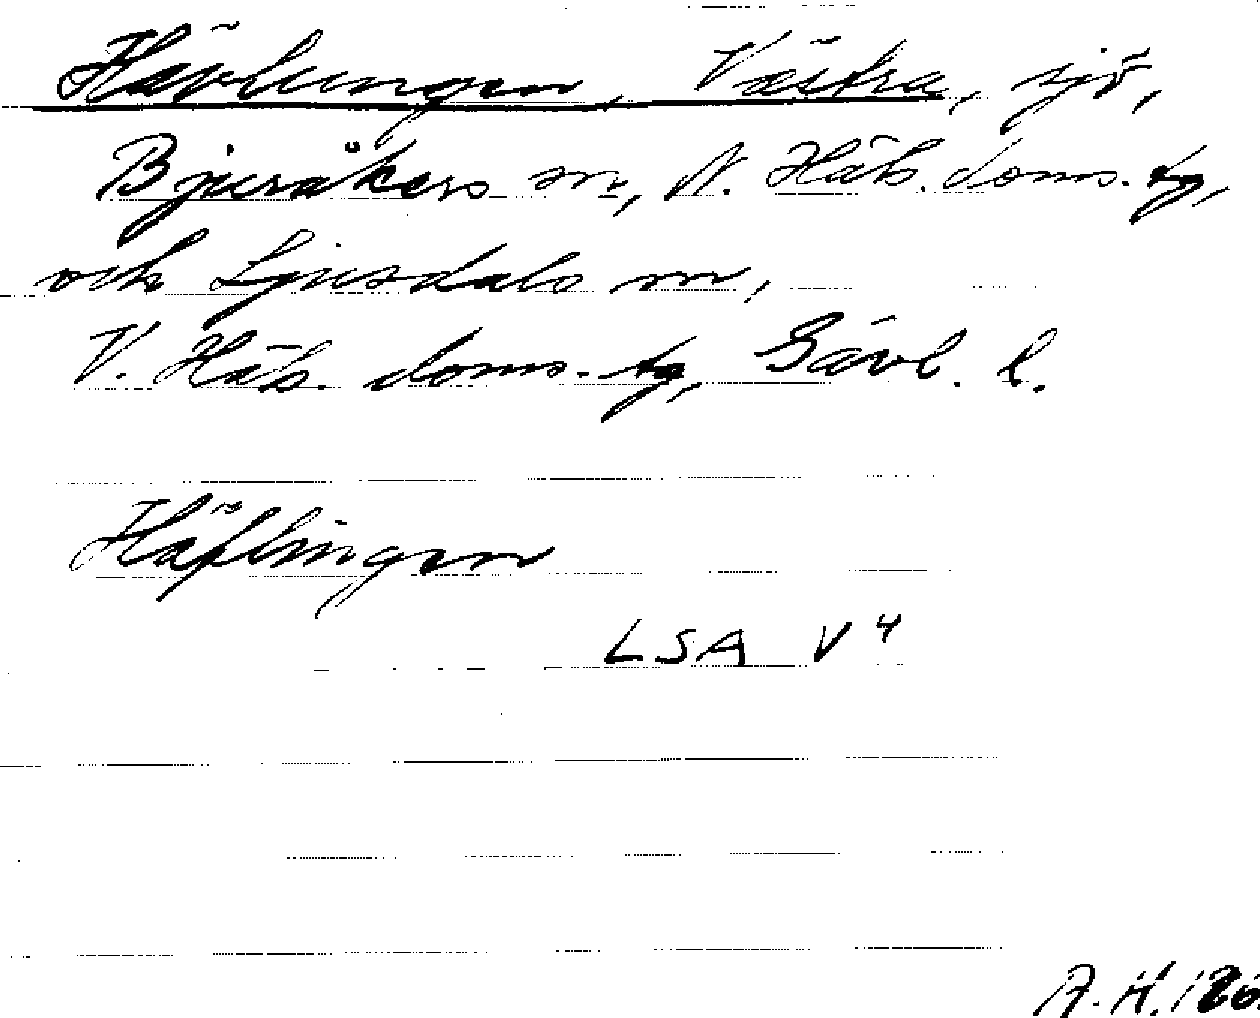 Hävlingen, Västra, sjö,
Bjuråkers sn, N. Häls. doms.-sg,
och Ljusdals sn,
V. Häls. doms.-sg, Gävl. l.
Häflingen
LSA V 4
A. H. 186